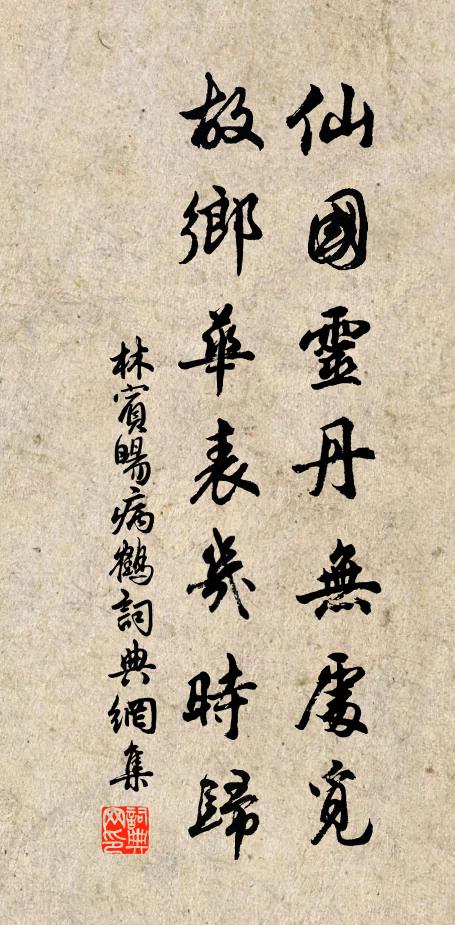 仙國靈丹無處覓
故鄉華表幾時歸
林賓暘病鶴詞典網集
詞典网印